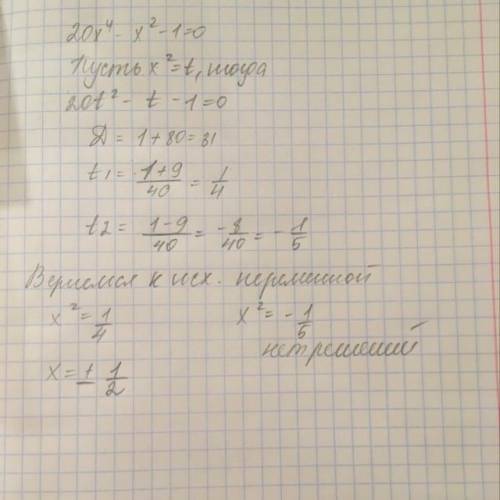 20x⁴ - x² - 1 = 0
Пусть x² = t, тогда
20t² - t - 1 = 0
D = 1 + 80 = 81
t₁ = (1+9)/40 = 1/4
t₂ = (1-9)/40 = -8/40 = -1/5
Вернемся к исх. переменной
x² = 1/4 x² = -1/5
нет решений
x = ± 1/2